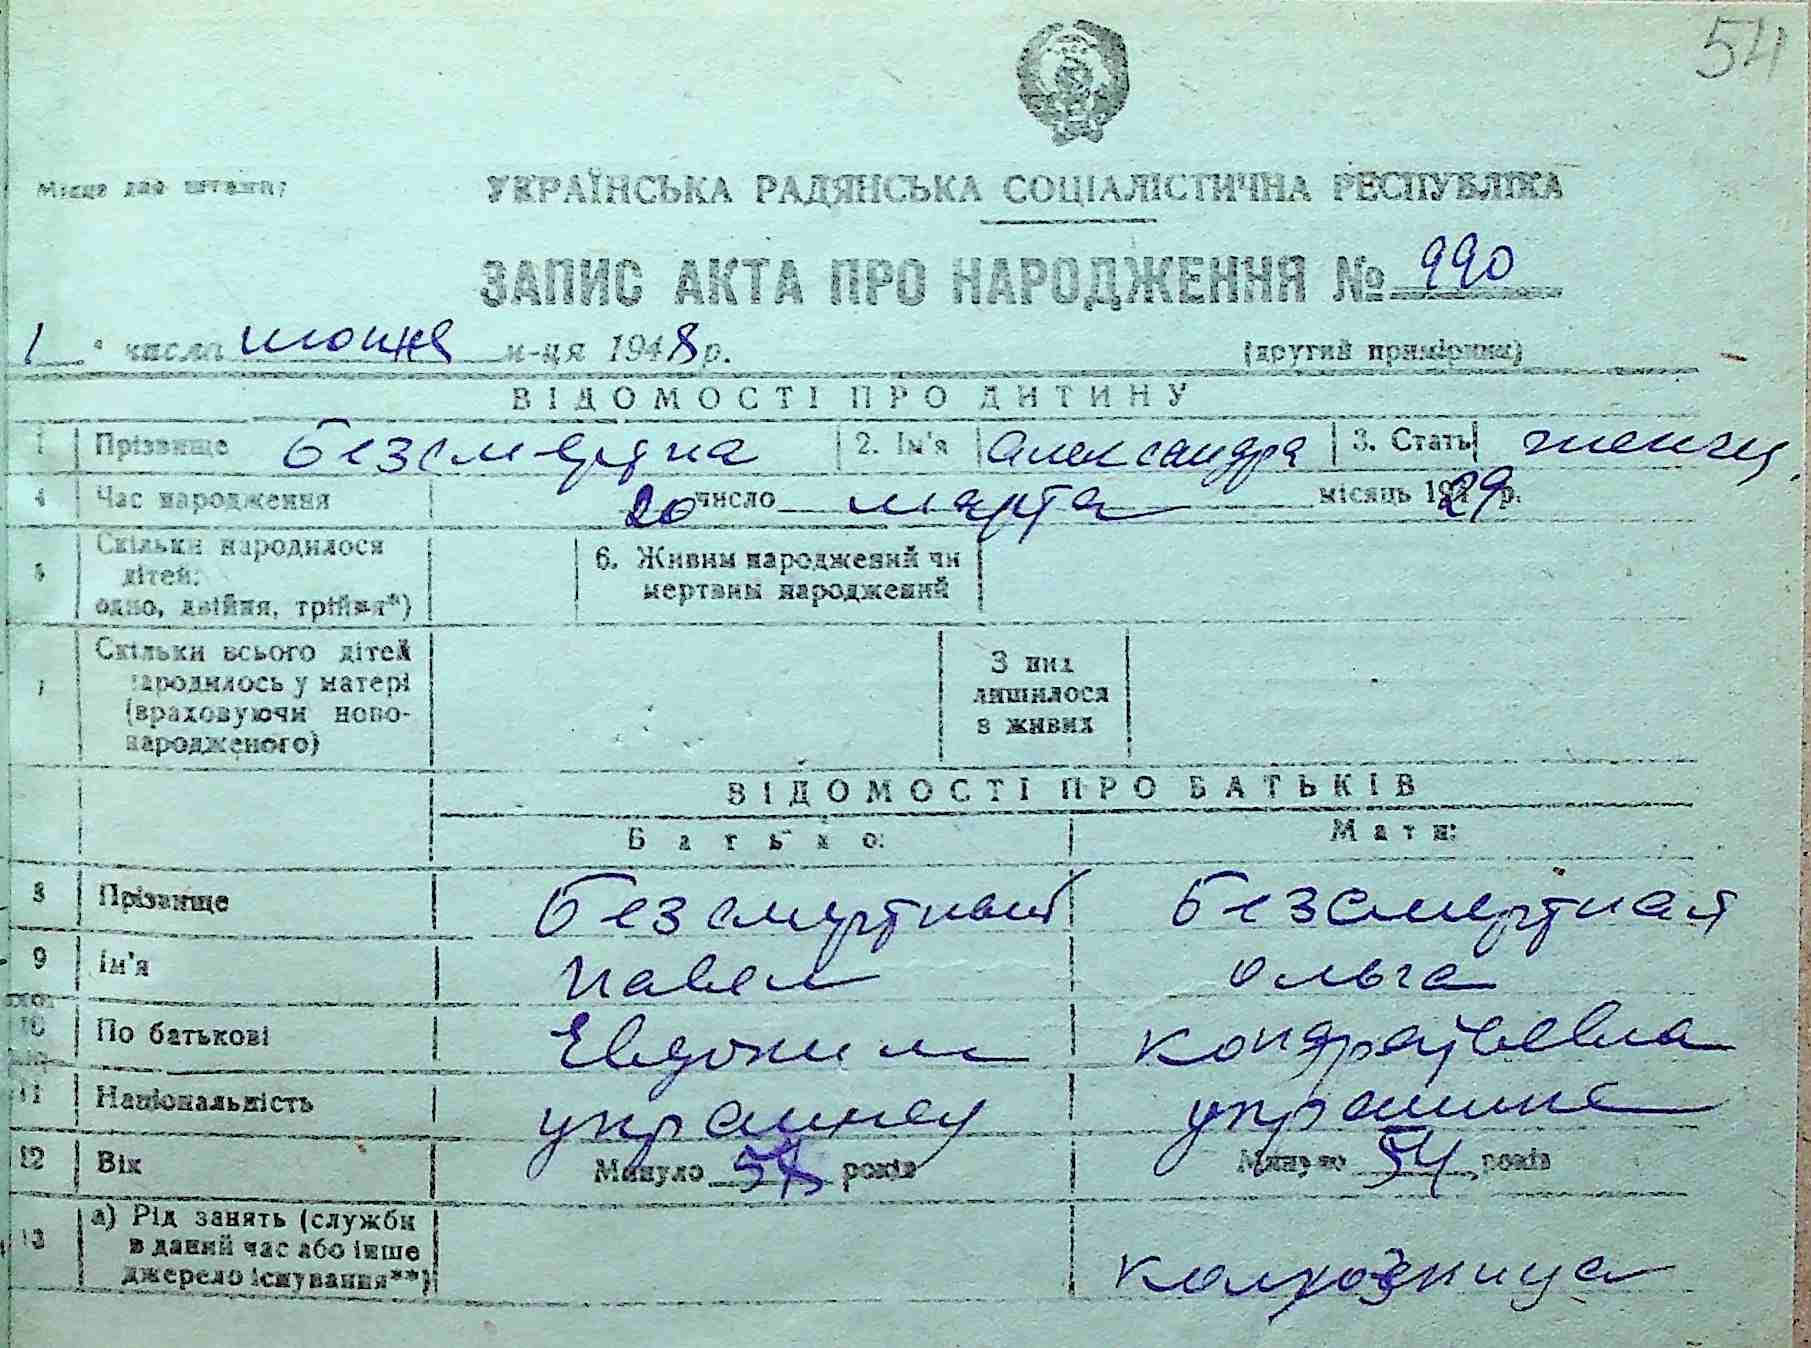 54
Місце для штампу
УКРАЇНСЬКА РАДЯНСЬКА СОЦІАЛІСТИЧНА РЕСПУБЛІКА
ЗАПИС АКТА ПРО НАРОДЖЕННЯ № 990
1 числа июня м-ця 1948 р. (другий примірник)
ВІДОМОСТІ ПРО ДИТИНУ
1 Прізвище Безсмертна 2. Ім'я Александра 3. Стать женск.
4 Час народження 20 число марта місяць 1929 р.
5 Скільки народилося дітей: одно, двійня, трійня*) 6. Живим народжений чи мертвим народжений
7 Скільки всього дітей народилось у матері (враховуючи новонародженого) З них лишилося в живих
ВІДОМОСТІ ПРО БАТЬКІВ
Батько: Мати:
8 Прізвище Безсмертный Безсмертная
9 Ім'я Павел Ольга
10 По батькові Евдоким Кондратьевна
11 Національність украинец украинка
12 Вік Минуло років Минуло 54 років
13 а) Рід занять (служби в даний час або інше джерело існування**) колхозница